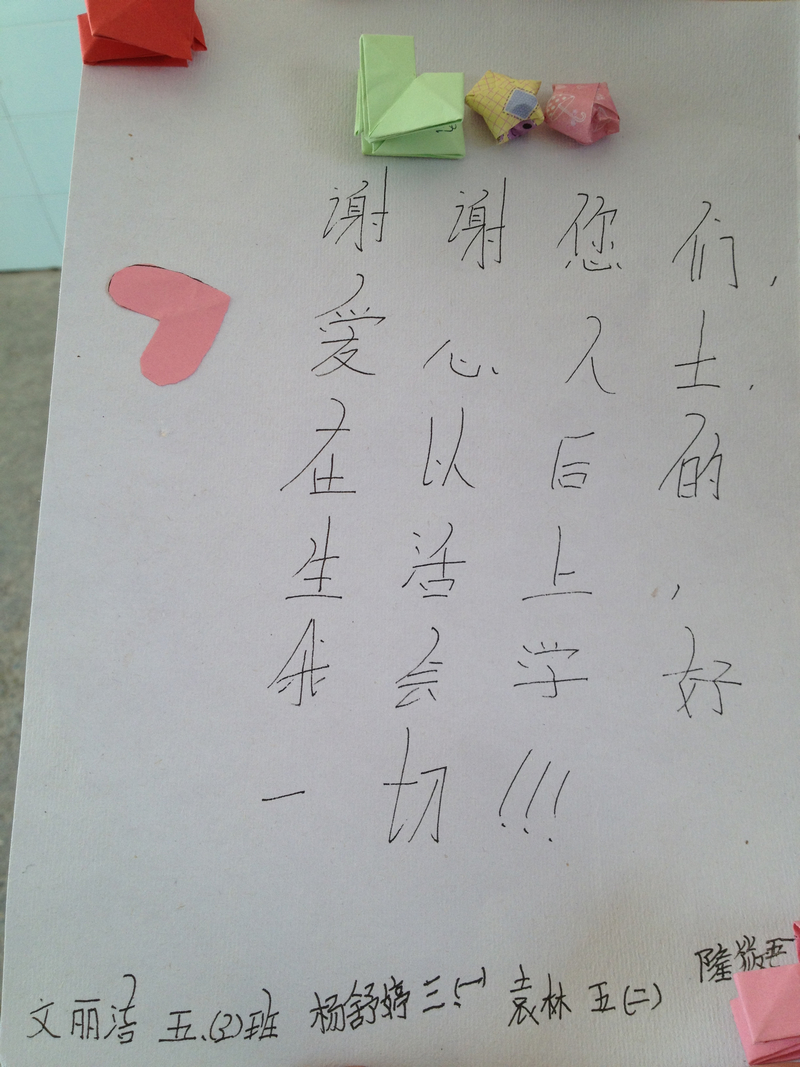 谢谢您们，
爱心人士.
在以后的
生活上，
我会学好
一切!!!
文丽洁 五.(2)班 杨舒婷 三.(一) 袁林 五(二)
隆